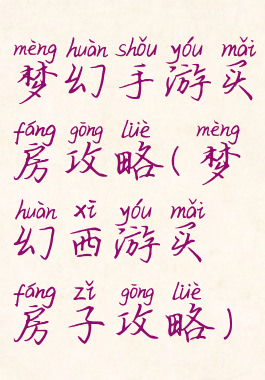 mèng huàn shǒu yóu mǎi
梦幻手游买
fáng gōng lüè mèng
房攻略(梦
huàn xī yóu mǎi
幻西游买
fáng zǐ gōng lüè
房子攻略)